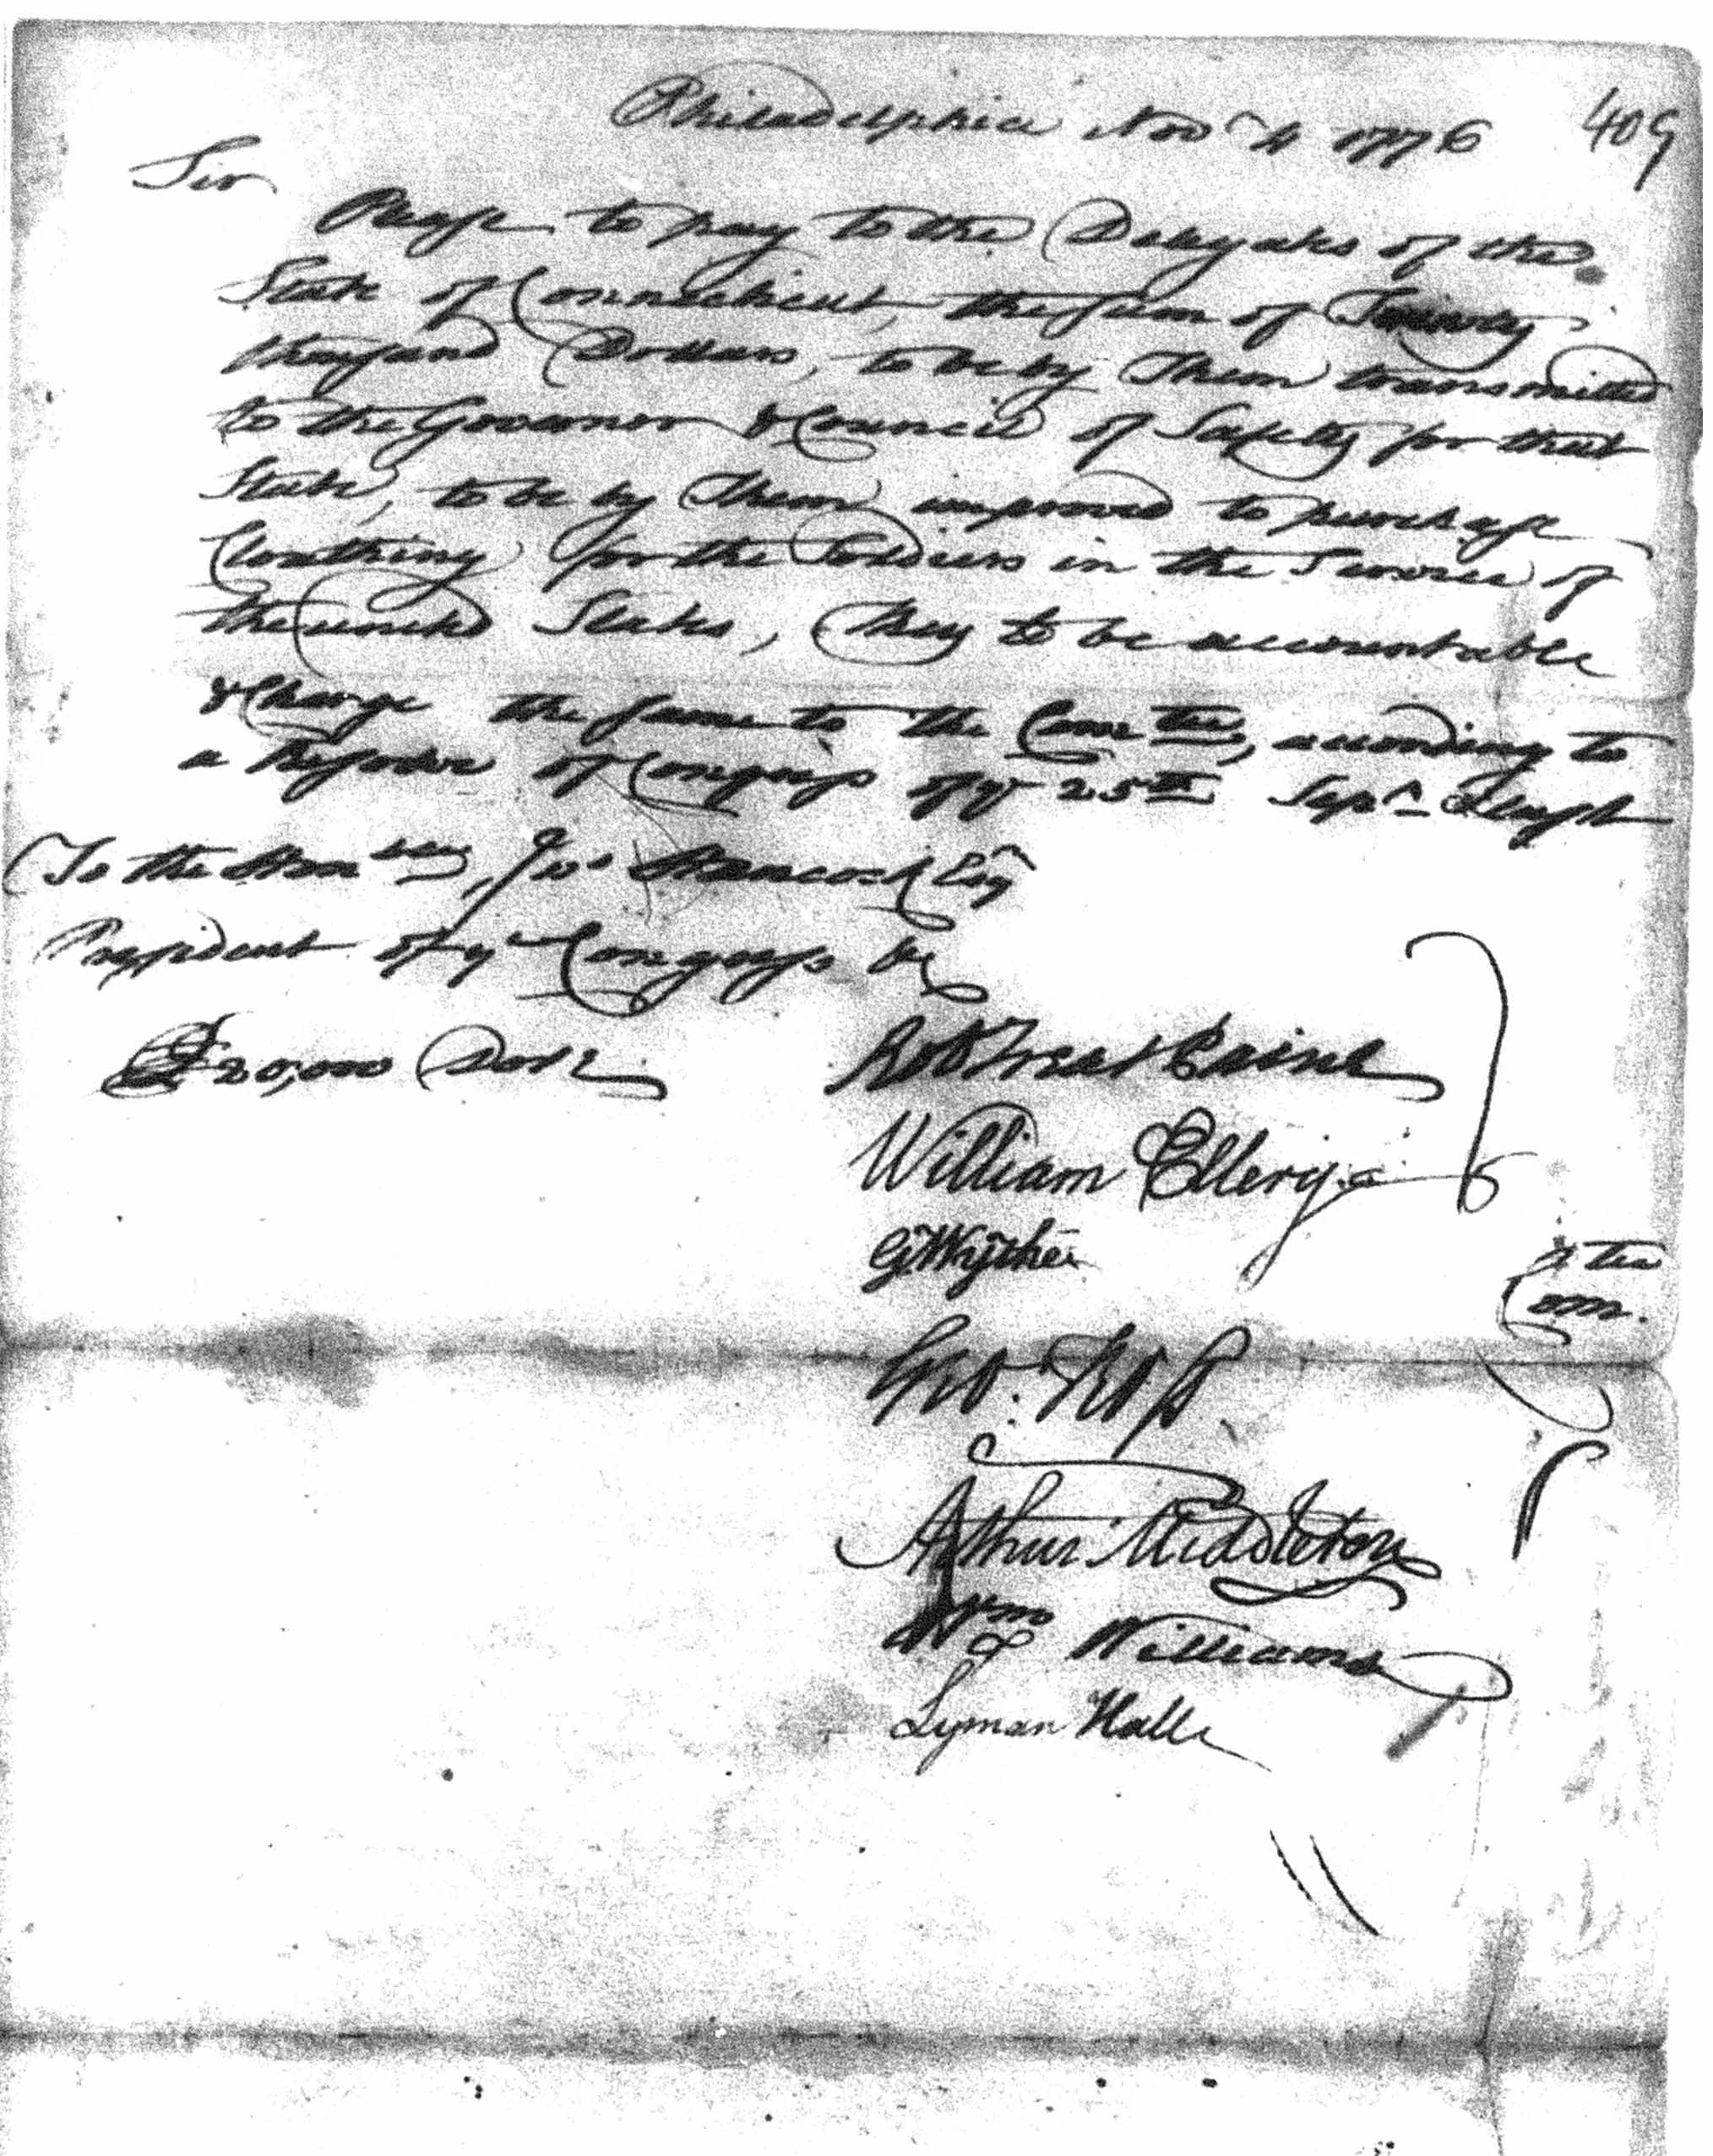 409
Philadelphia Novr 4 1776
Sir
Please to pay to the Delegates of the
State of Connecticut, the sum of Twenty
thousand Dollars, to be by Them transmitted
to the Governor & Council of Safety for that
State, to be by Them improved to purchase
Cloathing for the Soldiers in the Service of
the united States, they to be accountable
& Charge the same to the Comtee, according to
a Resolve of Congress of ye 25th Sepr
To the Honble Jno Hancock Esqr
President of ye Congress &c
20,000 Dolls
Rob Treat Paine
William Ellery
G Wythe
Geo: Ross
Arthur Middleton
Wm Williams
Lyman Hall
Com.